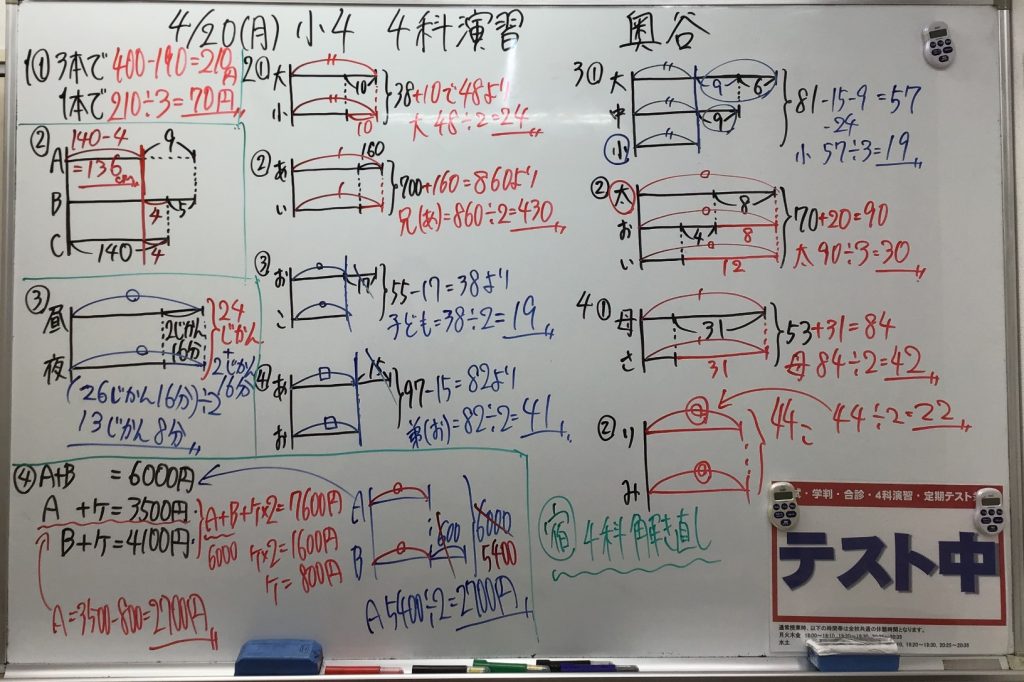 4/20(月) 小4 4科演習 奥谷
1① 3本で 400-190=210円
1本で 210÷3=70円
②
140-4
A =136cm 9
B 4 5
C 140 4
③
昼
2じかん
16分
夜
24じかん
+
2じかん
16分
(26じかん16分)÷2
13じかん8分
④ A+B =6000円
A +ケ=3500円
B+ケ=4100円
A+B+ケ×2=7600円
6000 ケ×2=1600円
ケ=800円
A=3500-800=2700円
A
B
600
6000
5400
A 5400÷2=2700円
2①
大 10
小 10
38+10で48より
大 48÷2=24
②
あ 160
い
700+160=860より
兄(あ)=860÷2=430
③
お 17
こ
55-17=38より
子ども=38÷2=19
④
あ 15
お
97-15=82より
弟(お)=82÷2=41
3①
大 9 6
中 9
小
81-15-9=57
-24
小 57÷3=19
②
太 8
お 4 8
い 12
70+20=90
太 90÷3=30
4①
母 31
さ 31
53+31=84
母 84÷2=42
②
り
み
44こ
44÷2=22
宿 4科解き直し
・学判・合診・4科演習・定期テスト
テスト中
通常授業時、以下の時間帯は全校共通の休憩時間となります。
月火木金
水土